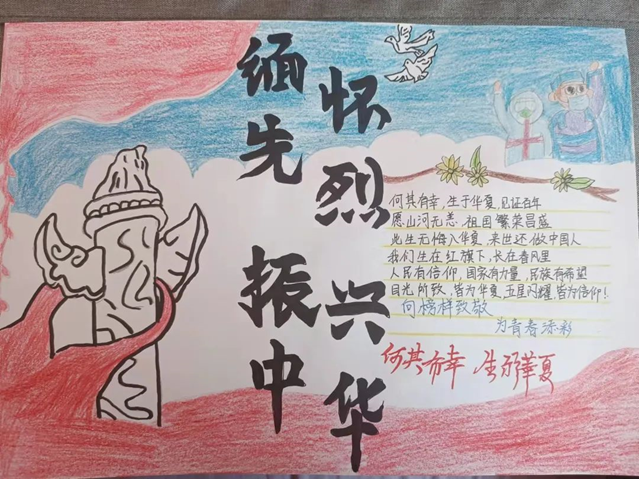 缅怀先烈
振兴中华
何其有幸,生于华夏,见证百年
愿山河无恙,祖国繁荣昌盛
此生无悔入华夏,来世还做中国人
我们生在红旗下,长在春风里
人民有信仰,国家有力量,民族有希望
目光所致,皆为华夏,五星闪耀,皆为信仰!
向榜样致敬
为青春添彩
何其有幸 生于華夏